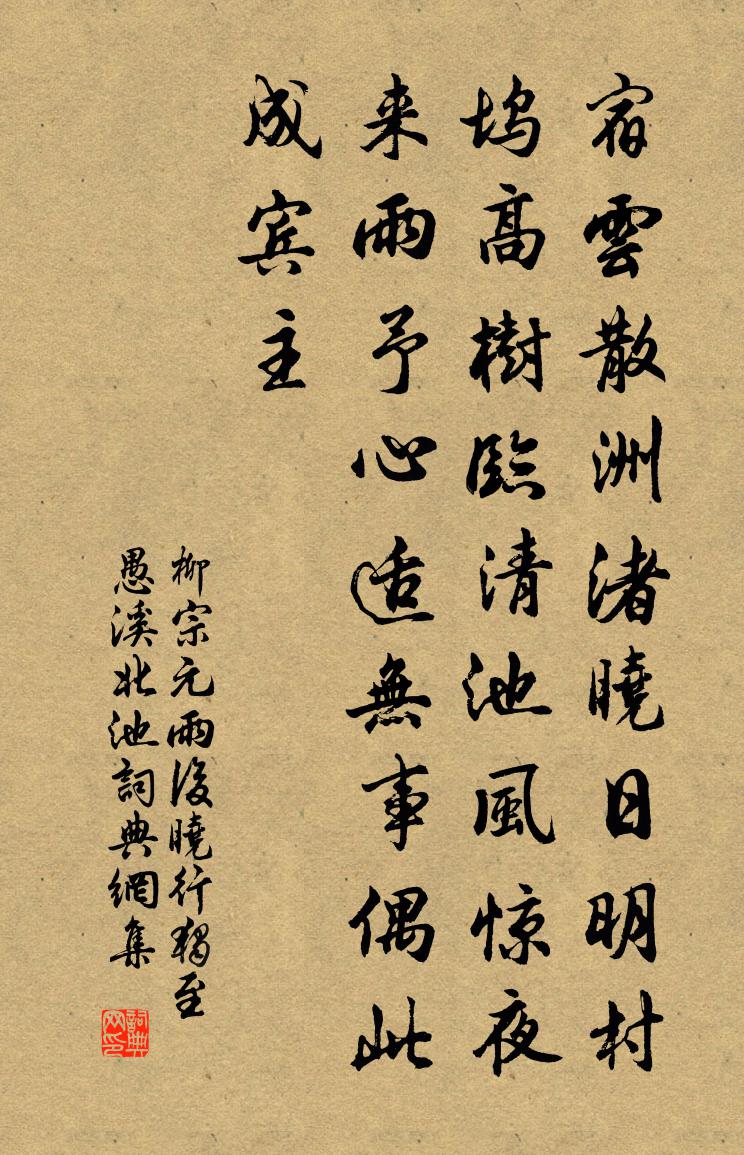 宿雲散洲渚曉日明村
塢高樹臨清池風惊夜
来雨予心适無事偶此
成宾主
柳宗元雨後曉行獨至
愚溪北池詞典網集
詞典网印